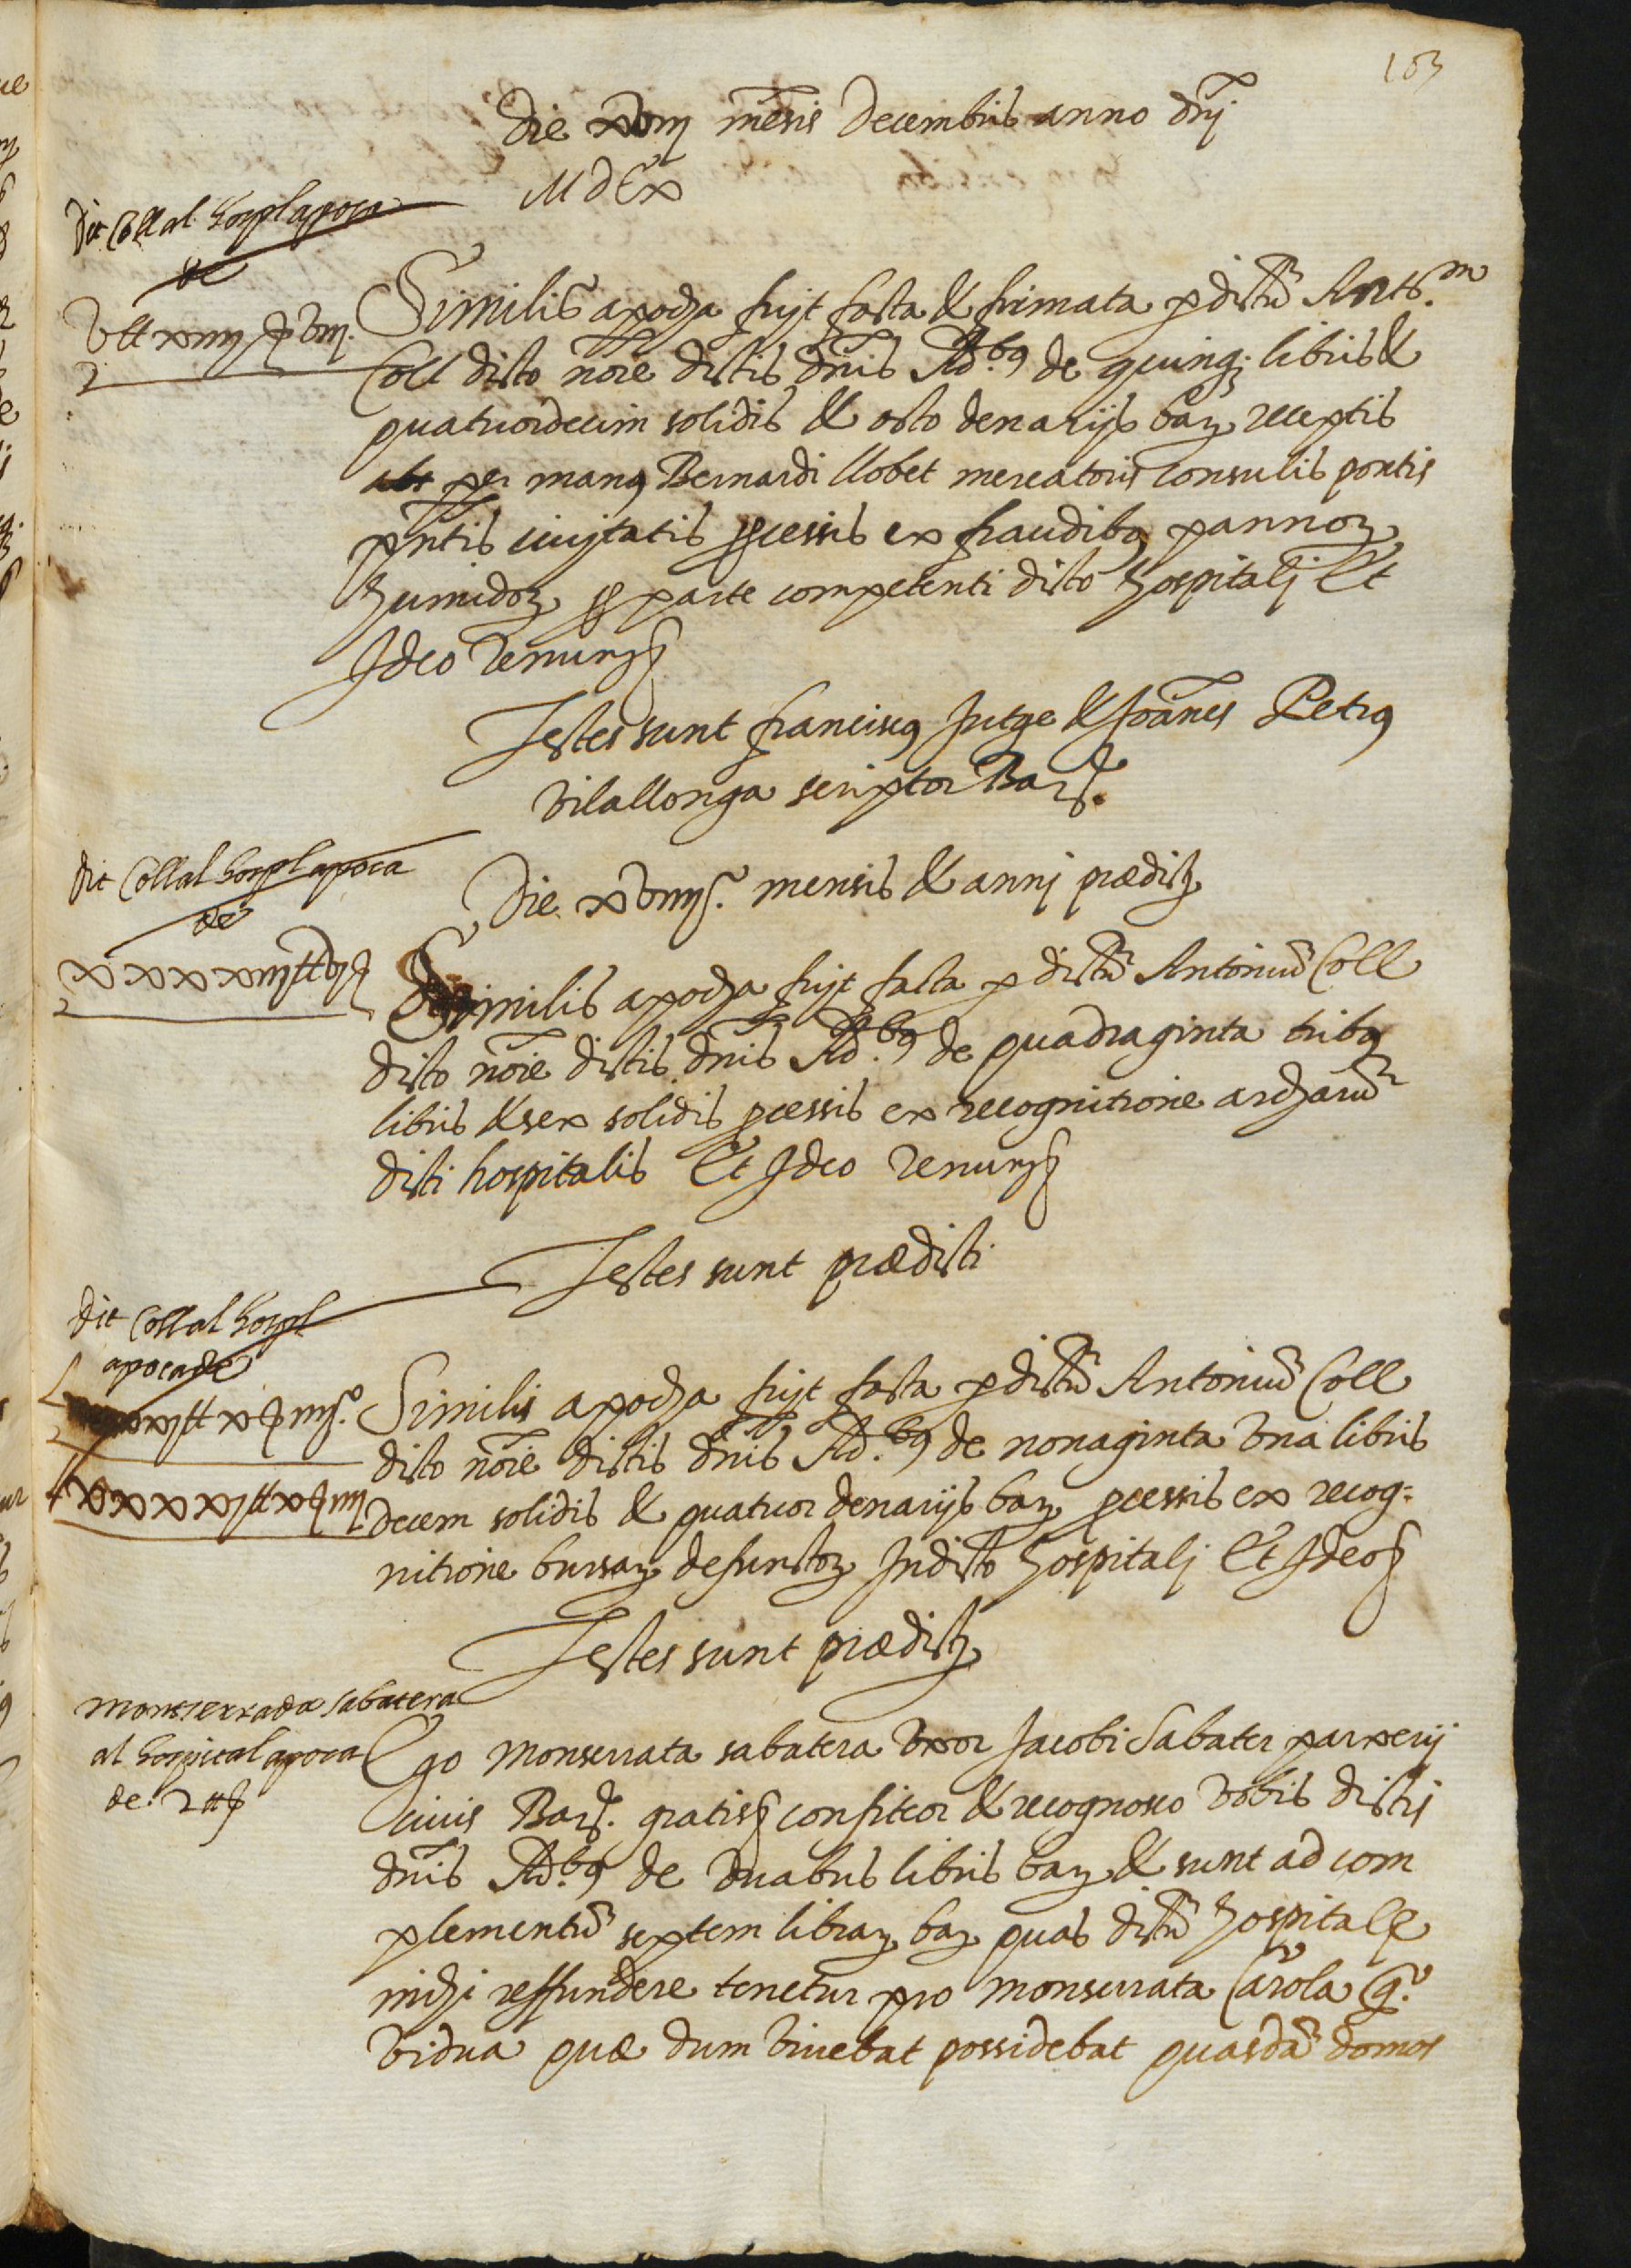 103
Die xviij mẽsis Decembris anno dñj
MdCx
Dit Coll al hospl apoca
de
v ₶ xiiij ß viij.
Similis apocha fuyt facta & firmata p dictũ Ant.m
Coll dicto nõie dictis dñis Ad.bꝯ de quinqꝫ libris &
quatuordecim solidis & octo denarijs barꝫ receptis
per manꝯ Bernardi llobet mercatoris consulis pontis
pñtis ciuitatis ꝓcessis ex fraudibꝯ pannoꝫ
humidoꝫ ꝓ parte competenti dicto hospitalj Et
Ideo Renunꝭ
Testes sunt franciscꝯ Jutge & Joãnes Petrꝯ
vilallonga scriptor Barꝭ.
Dit Coll al hospl apoca
de
xxxxiij ₶ vj ß
Die xviiij. mensis & annj prædictꝫ
Similis apocha fuyt facta p dictũ Antoniũ Coll
dicto nõie dictis dñis Ad.bꝯ de quadraginta tribꝯ
libris & sex solidis ꝓcessis ex recognitione archarũ
dicti hospitalis Et Ideo Renunꝭ
Testes sunt prædicti
Dit Coll al hospl
apoca de
Lxxxxj ₶ x ß iiij.
Similis apocha fuyt facta p dictũ Antoniũ Coll
dicto nõie dictis dñis Ad.bꝯ de nonaginta vna libris
decem solidis & quatuor denarijs barꝫ ꝓcessis ex recog-
nitione bursaꝫ defunctoꝫ In dicto hospitalj Et Ideoꝭ
Testes sunt prædictꝫ
Montserrada Sabatera
al hospital apoca
de 2 ₶ ß
Ego Monserrata sabatera vxor Jacobi Sabater parxerij
ciuis Barꝭ. gratisꝭ confiteor & recognosco vobis dictis
dñis Ad.bꝯ de duabus libris barꝫ & sunt ad com
plementũ septem libraꝫ barꝫ quas dictũ hospitale
michi reffundere tenetur pro Monserrata Carola q.º
vidua quæ dum viuebat possidebat quasdã domos